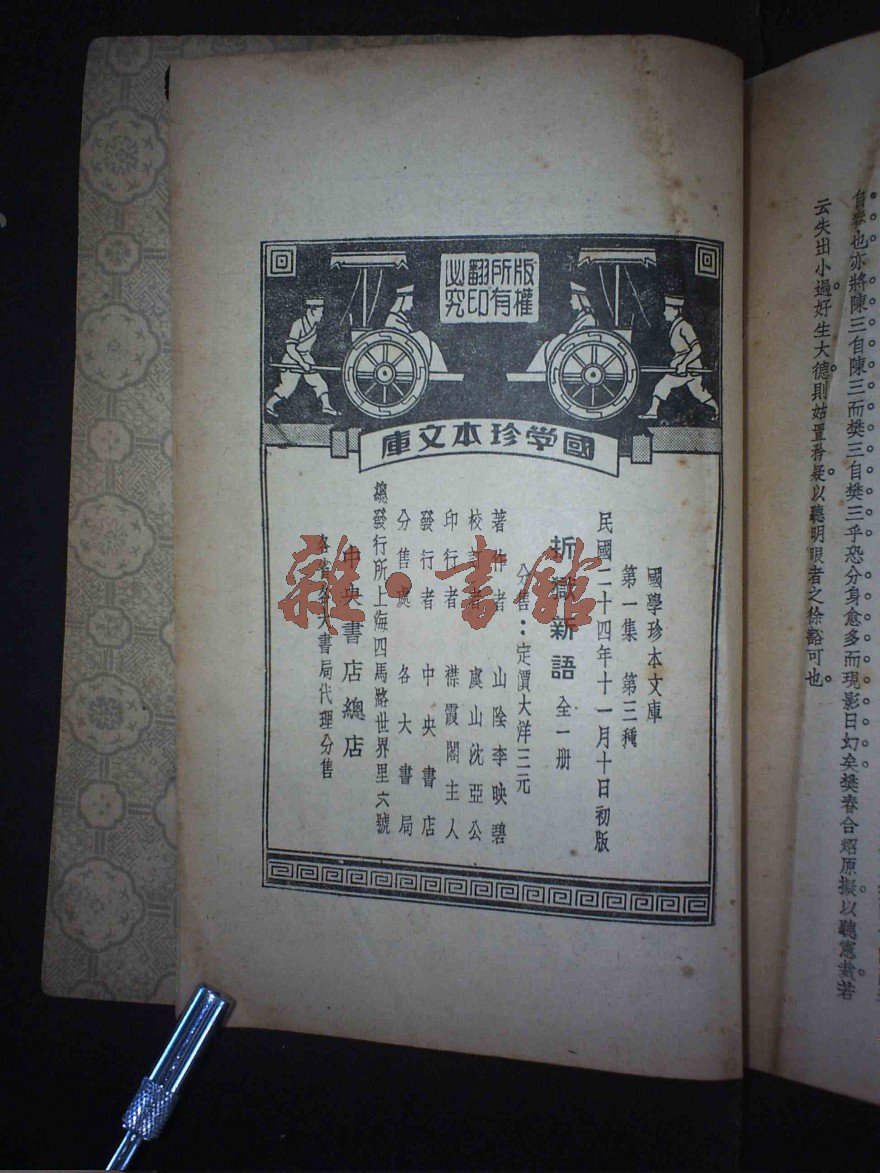 版權
所有
翻印
必究
國學珍本文庫
國學珍本文庫
第一集 第三種
民國二十四年十一月十日初版
折獄新語 全一册
分售：定價大洋三元
著作者 山陰李映碧
校訂者 虞山沈亞公
印行者 襟霞閣主人
發行者 中央書店
分售處 各大書局
總發行所上海四馬路世界里六號
中央書店總店
各省各大書局代理分售
雜·書館
自春也亦將陳三自陳三而樊三自樊三乎恐分身愈多而現影日幻矣樊春合炤原擬以聽憲裁若
云失出小過好生大德則姑置矜疑以聽明眼者之徐豁可也。